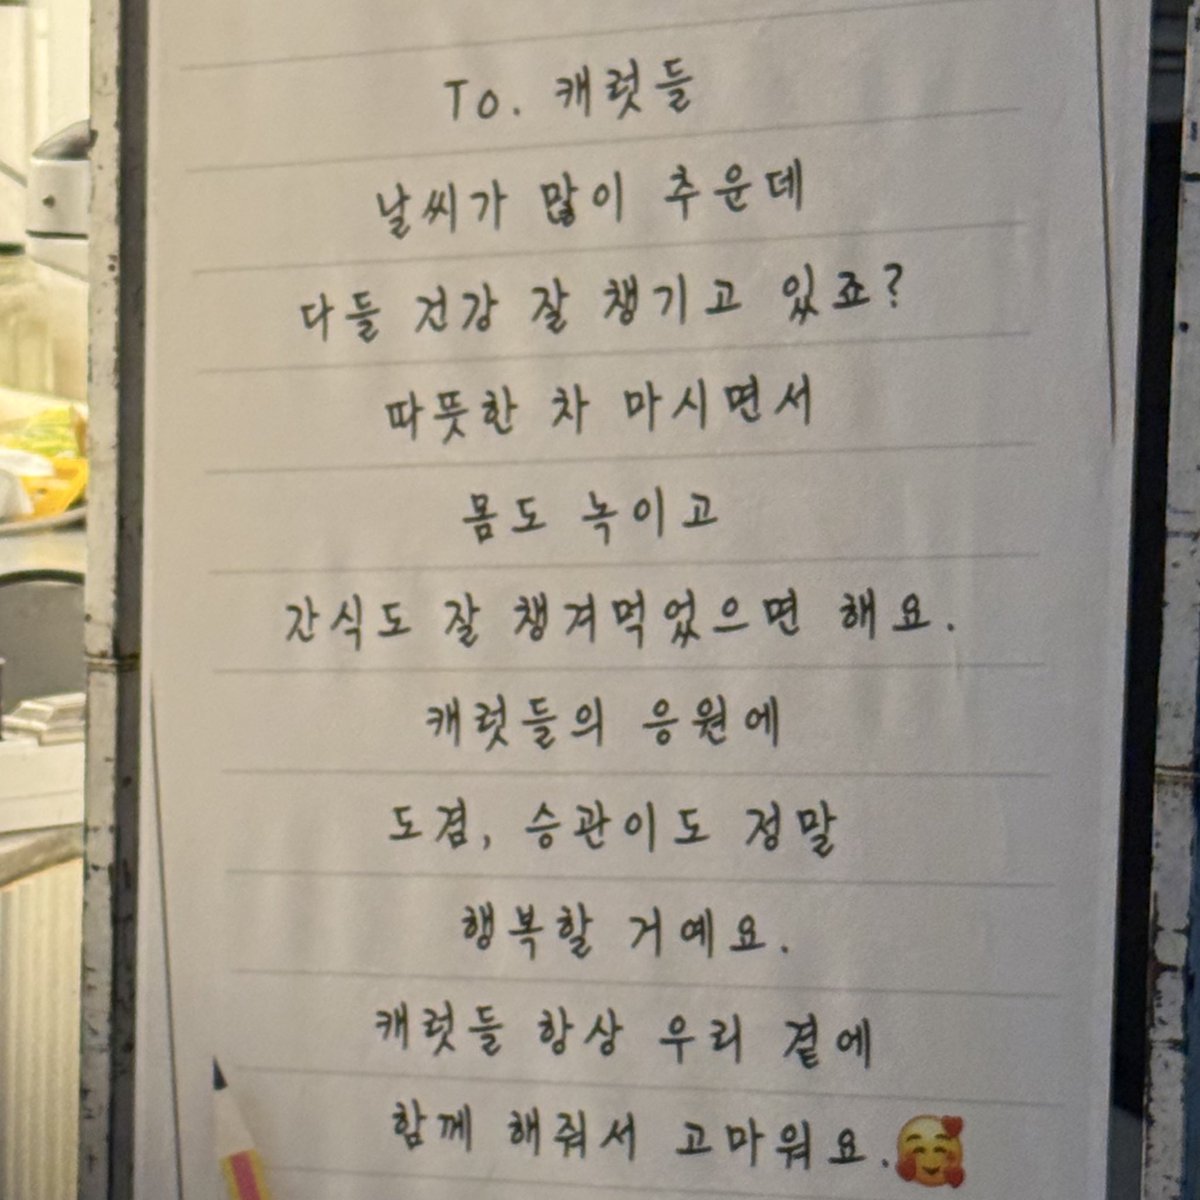 To. 캐럿들
날씨가 많이 추운데
다들 건강 잘 챙기고 있죠?
따뜻한 차 마시면서
몸도 녹이고
간식도 잘 챙겨먹었으면 해요.
캐럿들의 응원에
도겸, 승관이도 정말
행복할 거예요.
캐럿들 항상 우리 곁에
함께 해줘서 고마워요.🥰